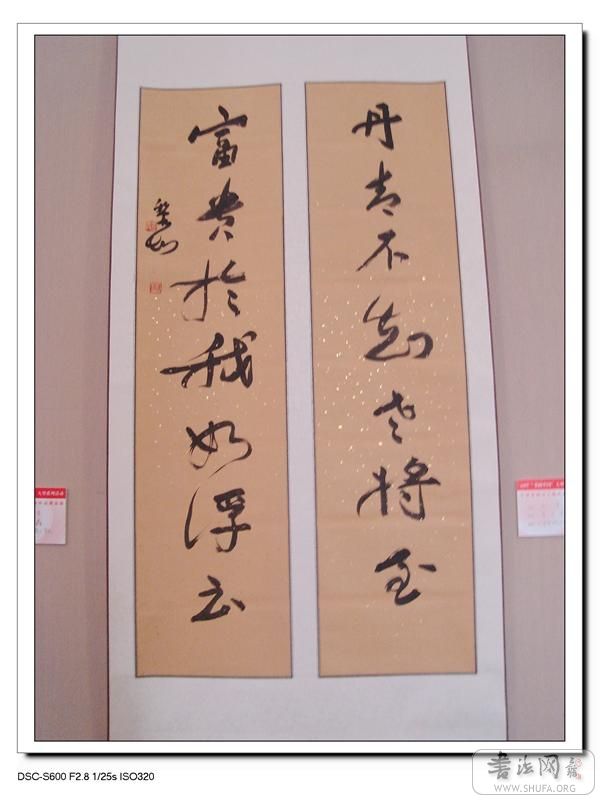 丹青不知老将至
富贵於我如浮云
DSC-S600 F2.8 1/25s ISO320
书法网
WWW.SHUFA.ORG